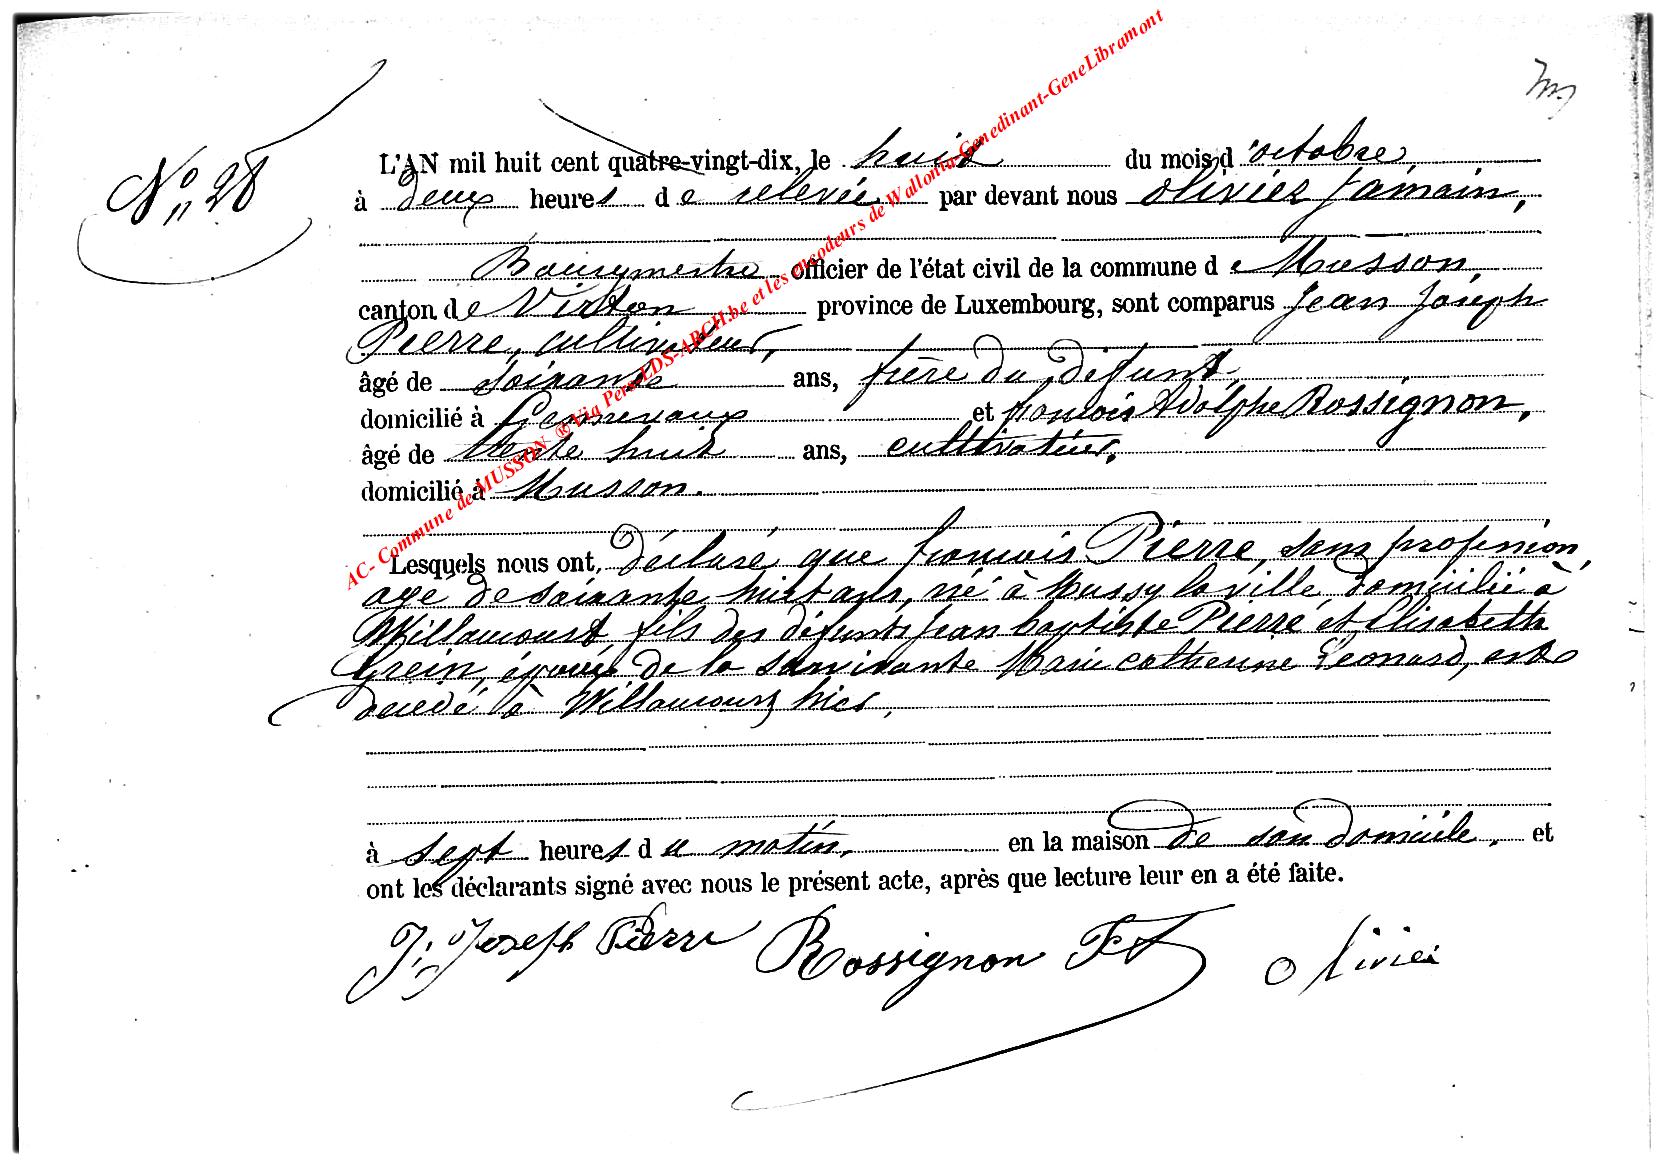 N° 28
L'AN mil huit cent quatre-vingt-dix, le huit du mois d'octobre,
à deux heures de relevée par devant nous Olivier Jamain,
Bourgmestre officier de l'état civil de la commune de Musson,
canton de Virton province de Luxembourg, sont comparus Jean Joseph
Pierre, cultivateur,
âgé de soixante ans, frère du défunt,
domicilié à Gennevaux et françois Adolphe Rossignon,
âgé de trente huit ans, cultivateur,
domicilié à Musson.
Lesquels nous ont, déclaré que françois Pierre, sans profession,
agé de soixante huit ans, né à Mussy la ville, domicilié à
Willancourt, fils des défunts Jean baptiste Pierre et Elisabeth
Grein, époux de la survivante Marie catherine Léonard, est
decedé à Willancourt hier,
à sept heures du matin, en la maison de son domicile, et
ont les déclarants signé avec nous le présent acte, après que lecture leur en a été faite.
J. Joseph Pierre Rossignon FA Olivier
AC- Commune de MUSSON ® Via Pero.LDS-ARCH.be et les encodeurs de Wallonia-Genedinant-GeneLibramont